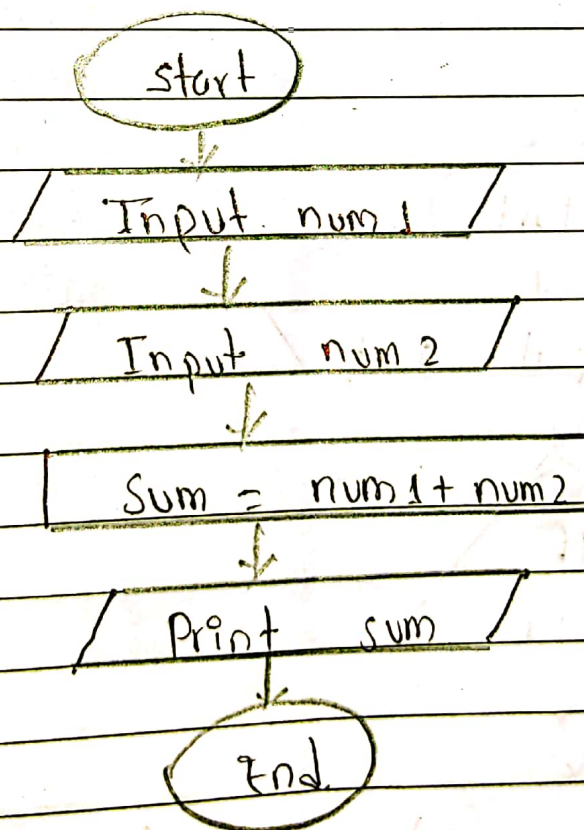 start
Input num 1
Input num 2
Sum = num1 + num2
Print sum
End